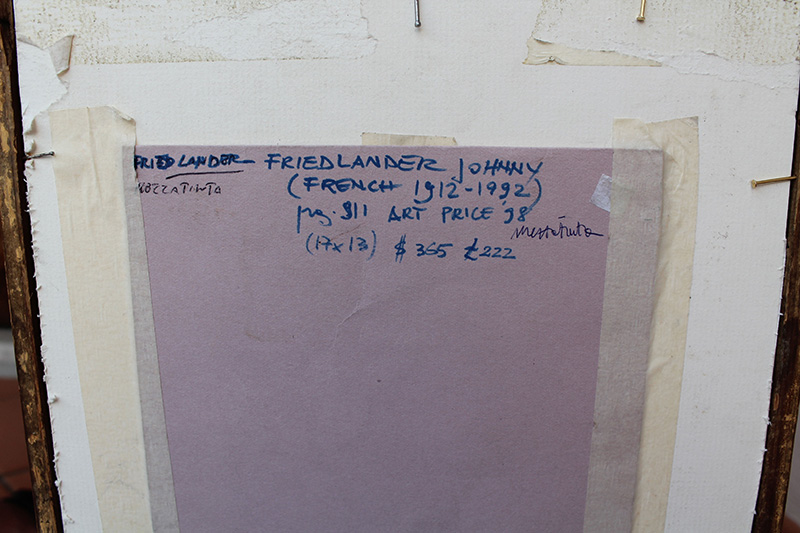 FRIEDLANDER FRIEDLANDER JOHNNY
MEZZATINTA (FRENCH 1912-1992)
pag. 911 ART PRICE '98
mezzatinta
(17x13) $ 365 £222